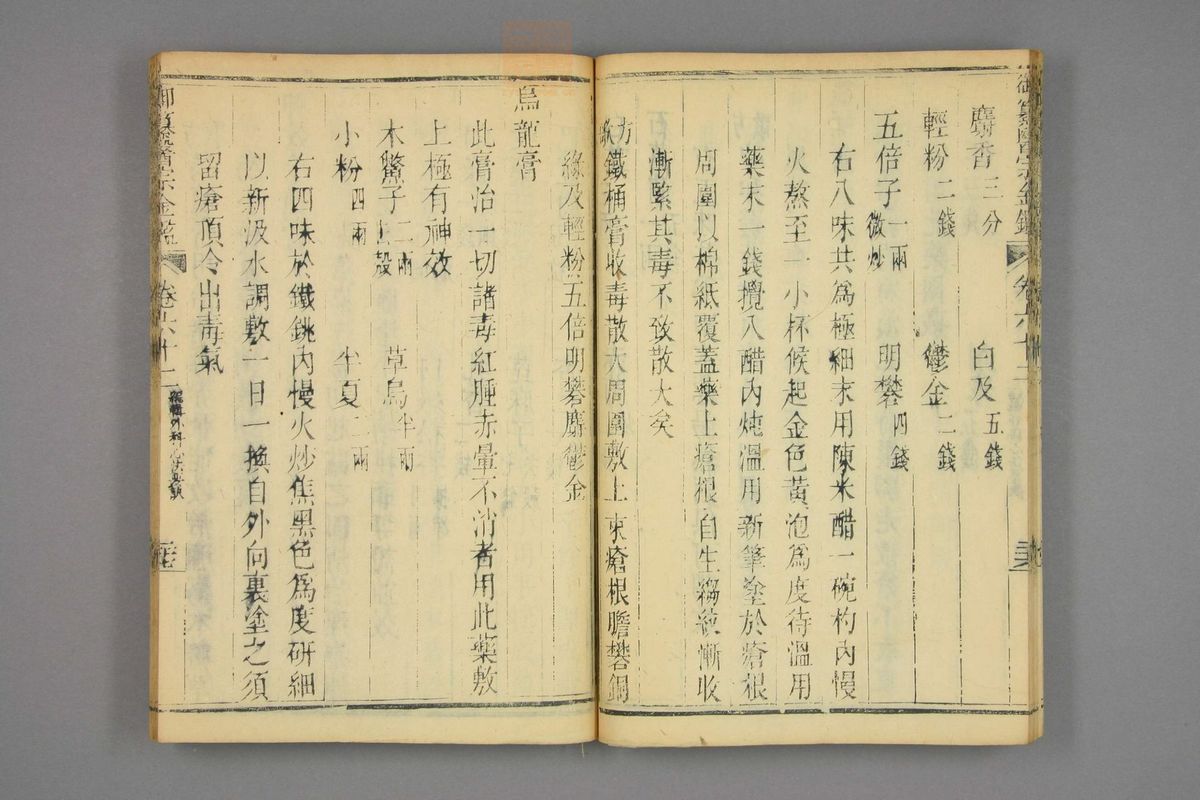 御纂醫宗金鑑 卷六十二
麝香三分 白及五錢
輕粉二錢 鬱金二錢
五倍子一兩微炒 明礬四錢
右八味共為極細末用陳米醋一碗杓內慢
火熬至一小杯候起金色黃泡為度待溫用
藥末一錢攪入醋內燉溫用新筆塗於瘡根
周圍以棉紙覆蓋藥上瘡根自生縐紋漸收
漸緊其毒不致散大矣
方歌 鐵桶膏收毒散大周圍敷上束瘡根膽礬銅
綠及輕粉五倍明礬麝鬱金
烏龍膏
此膏治一切諸毒紅腫赤暈不消者用此藥敷
上極有神效
木鱉子二兩去殼 草烏半兩
小粉四兩 半夏二兩
右四味於鐵銚內慢火炒焦黑色為度研細
以新汲水調敷一日一換自外向裏塗之須
留瘡頂令出毒氣
御纂醫宗金鑑 卷六十二 編輯外科心法要訣